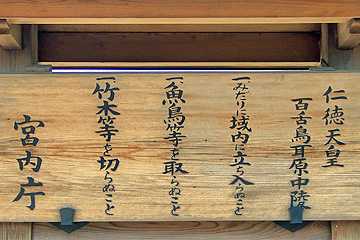 仁徳天皇
百舌鳥耳原中陵
一みだりに域内に立ち入らぬこと
一魚鳥等を取らぬこと
一竹木等を切らぬこと
宮内庁